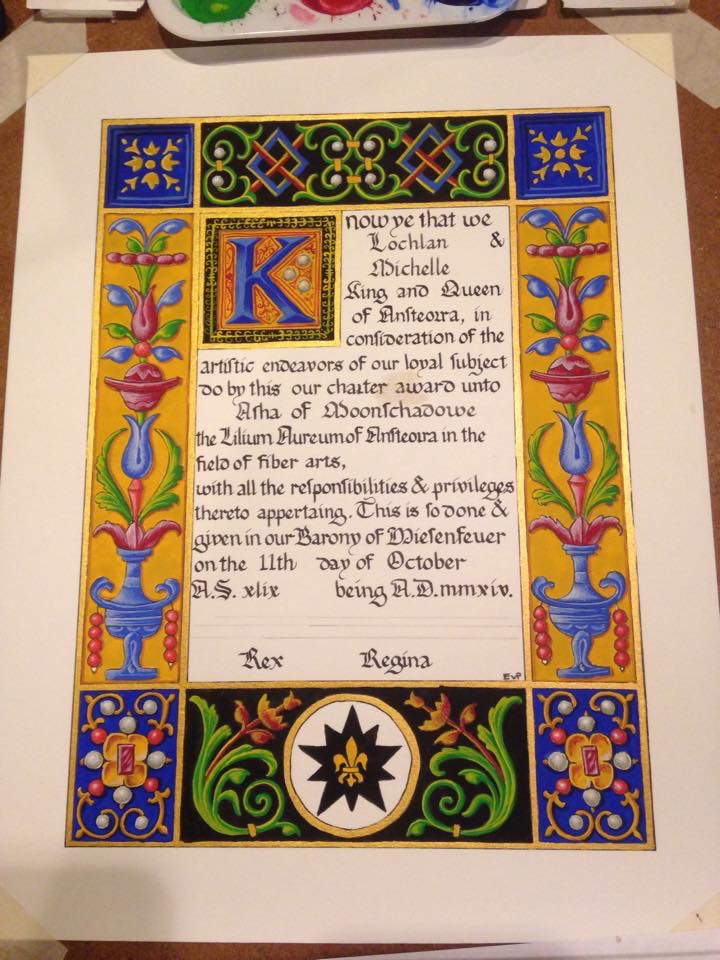 Know ye that we
Lochlan &
Michelle
King and Queen
of Ansteorra, in
consideration of the
artistic endeavors of our loyal subject
do by this our charter award unto
Asha of Moonschadowe
the Lilium Aureum of Ansteorra in the
field of fiber arts,
with all the responsibilities & privileges
thereto appertaing. This is so done &
given in our Barony of Wiesenfeuer
on the 11th day of October
A.S. xlix being A.D. mmxiv.
Rex Regina
EvP